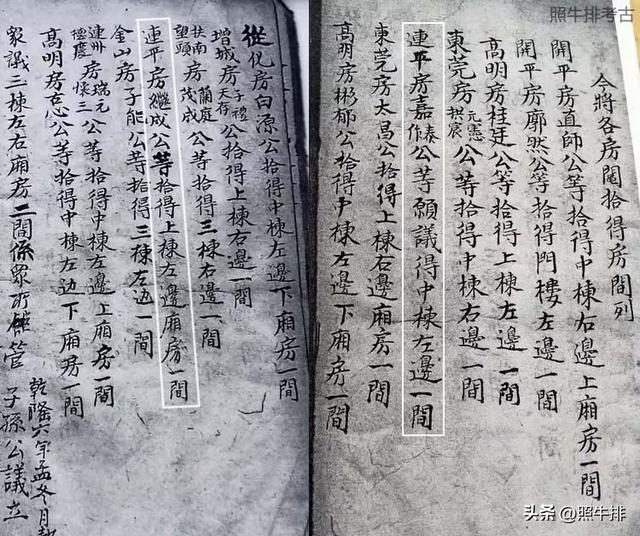 照牛排考古
今將各房鬮拾得房間列
開平房直師公等拾得中棟右邊上廂房一間
開平房廓然公等拾得門樓左邊一間
高明房桂廷公等拾得上棟左邊一間
東莞房元憲拱宸公等拾得中棟右邊一間
連平房嘉泰作公等願議得中棟左邊一間
東莞房太昌公拾得上棟右邊廂房一間
高明房彬郁公拾得中棟左邊下廂房一間
從化房白源公拾得中棟左邊下廂房一間
增城房子禮天存公拾得上棟右邊一間
扶南望頭房蘭庭茂成公等拾得三棟右邊一間
連平房繼成公等拾得上棟左邊廂房一間
金山房子能公等拾得三棟左边一間
連州德慶房瑞元懷三公等拾得中棟左邊上廂房一間
高明房公等拾得中棟左边下廂房一間
眾議三棟左右廂房二間係眾所管 子孫公議立
乾隆六年孟冬月
头条 @照牛排